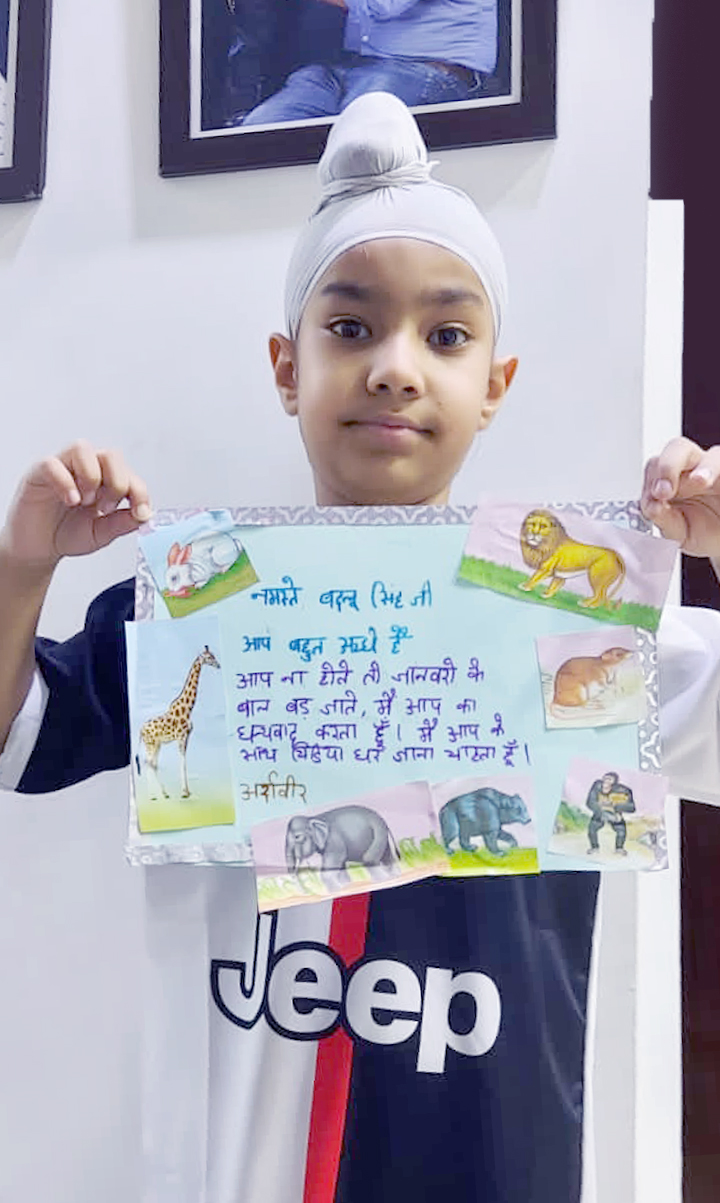 नमस्ते बदलू सिंह जी
आप बहुत अच्छे हैं
आप ना होते तो जानवरो के
बाल बड़ जाते, मैं आप का
धन्यवाद करता हूँ। मैं आप के
साथ चिडिया घर जाना चाहता हूँ।
अर्शवीर
Jeep